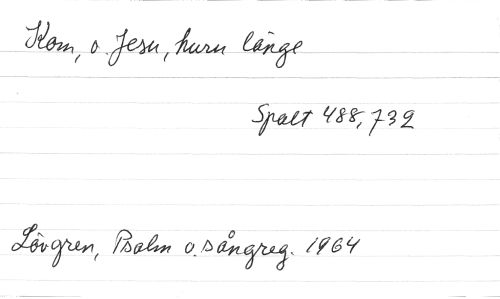 Kom, o. Jesu, huru länge
Spalt 488, 732
Lövgren, Psalm o. sångreg. 1964